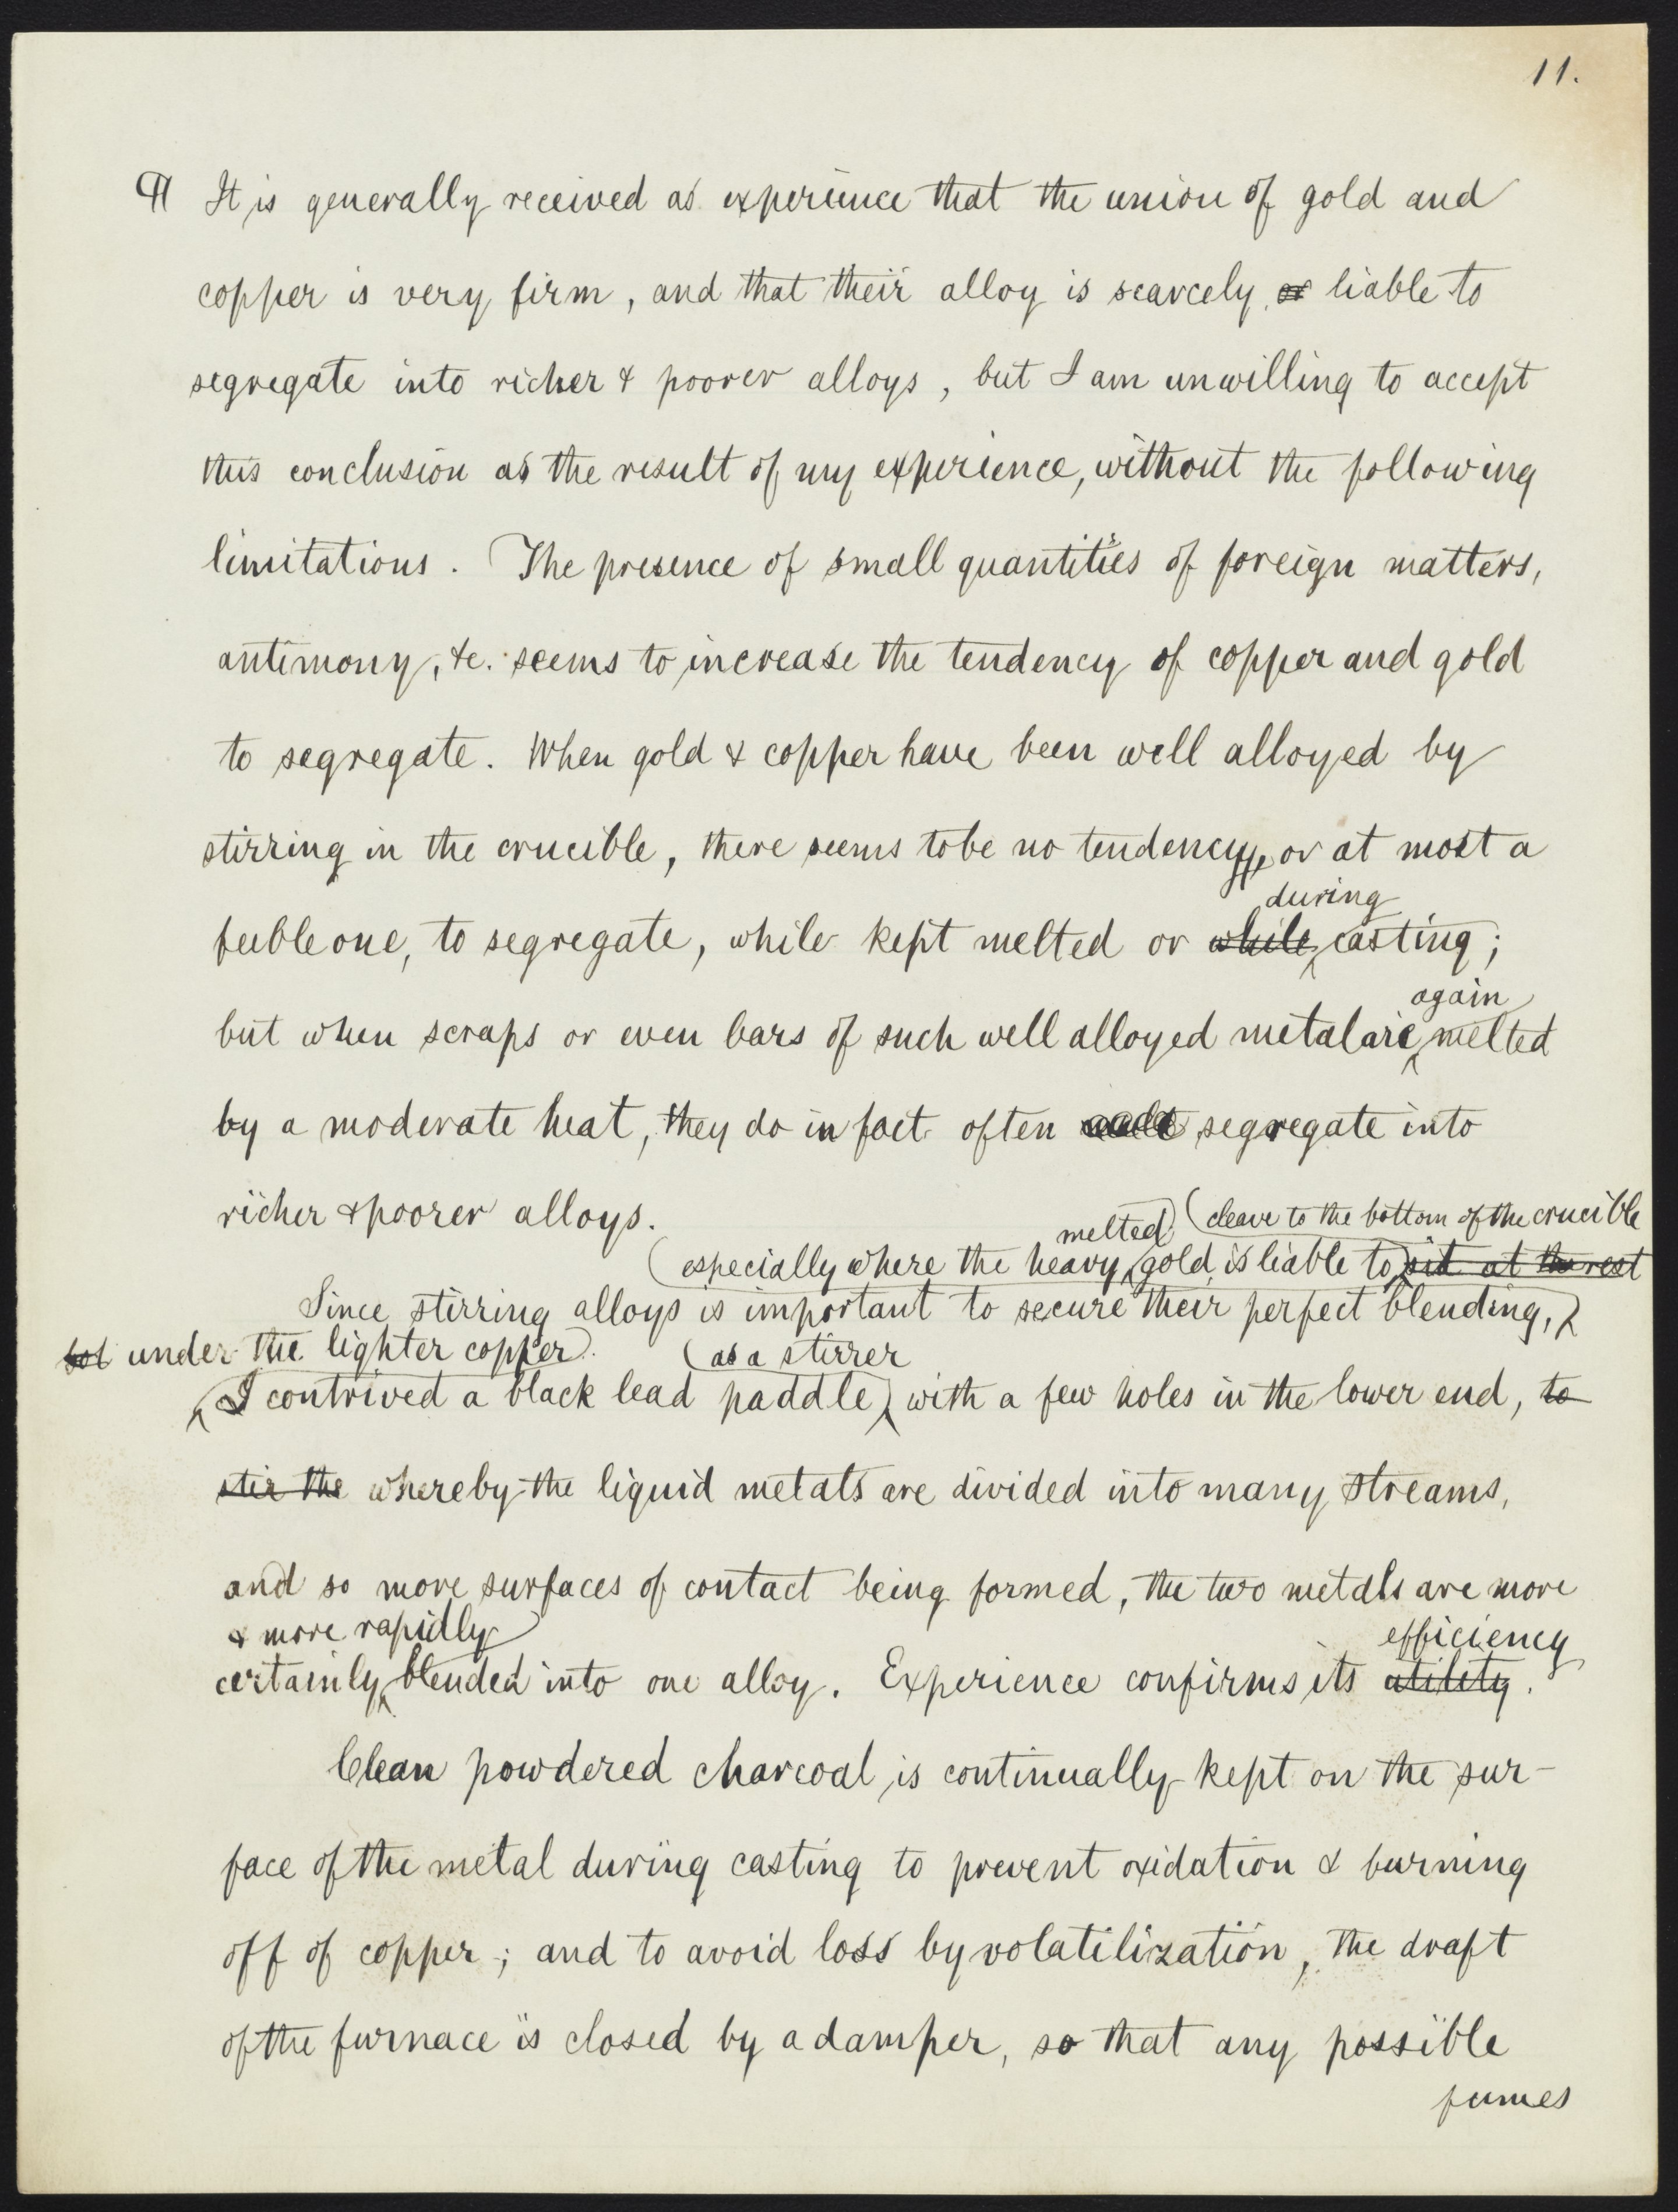 11.
¶ It is generally received as experience that the union of gold and
copper is very firm, and that their alloy is scarcely or liable to
segregate into richer & poorer alloys, but I am unwilling to accept
this conclusion as the result of my experience, without the following
limitations. The presence of small quantities of foreign matters,
antimony, &c. seems to increase the tendency of copper and gold
to segregate. When gold & copper have been well alloyed by
stirring in the crucible, there seems to be no tendency, or at most a
during
feeble one, to segregate, while kept melted or while casting;
again
but when scraps or even bars of such well alloyed metal are melted
by a moderate heat, they do in fact often segregate into
richer & poorer alloys.
melted (cleave to the bottom of the crucible
(especially where the heavy gold is liable to sit at the rest
Since stirring alloys is important to secure their perfect blending,
under the lighter copper). (as a stirrer
I contrived a black lead paddle) with a few holes in the lower end, to
stir the whereby the liquid metals are divided into many streams,
and so more surfaces of contact being formed, the two metals are more
& more rapidly efficiency
certainly blended into one alloy. Experience confirms its utility.
Clean powdered charcoal is continually kept on the sur-
face of the metal during casting to prevent oxidation & burning
off of copper; and to avoid loss by volatilization, the draft
of the furnace is closed by a damper, so that any possible
fumes